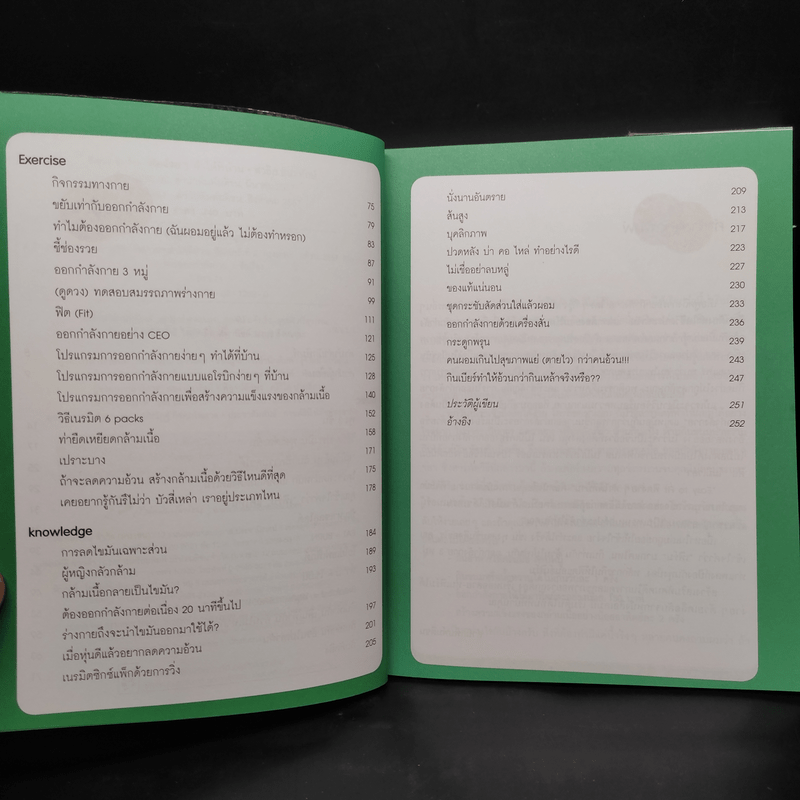 Exercise
กิจกรรมทางกาย 75
ขยับเท่ากับออกกำลังกาย 79
ทำไมต้องออกกำลังกาย (ฉันผอมอยู่แล้ว ไม่ต้องทำหรอก) 83
ชี้ช่องรวย 87
ออกกำลังกาย 3 หมู่ 91
(ดูดวง) ทดสอบสมรรถภาพร่างกาย 99
ฟิต (Fit) 111
ออกกำลังกายอย่าง CEO 121
โปรแกรมการออกกำลังกายง่ายๆ ทำได้ที่บ้าน 125
โปรแกรมการออกกำลังกายแบบแอโรบิกง่ายๆ ที่บ้าน 128
โปรแกรมการออกกำลังกายเพื่อสร้างความแข็งแรงของกล้ามเนื้อ 140
วิธีเนรมิต 6 packs 152
ท่ายืดเหยียดกล้ามเนื้อ 158
เปราะบาง 171
ถ้าจะลดความอ้วน สร้างกล้ามเนื้อด้วยวิธีไหนดีที่สุด 175
เคยอยากรู้กันรึไม่ว่า บัวสี่เหล่า เราอยู่ประเภทไหน 178
knowledge
การลดไขมันเฉพาะส่วน 184
ผู้หญิงกลัวกล้าม 189
กล้ามเนื้อกลายเป็นไขมัน? 193
ต้องออกกำลังกายต่อเนื่อง 20 นาทีขึ้นไป
ร่างกายถึงจะนำไขมันออกมาใช้ได้? 197
เมื่อหุ่นดีแล้วอยากลดความอ้วน 201
เนรมิตซิกซ์แพ็กด้วยการวิ่ง 205
นั่งนานอันตราย 209
ส้นสูง 213
บุคลิกภาพ 217
ปวดหลัง บ่า คอ ไหล่ ทำอย่างไรดี 223
ไม่เชื่ออย่าลบหลู่ 227
ของแท้แน่นอน 230
ชุดกระชับสัดส่วนใส่แล้วผอม 233
ออกกำลังกายด้วยเครื่องสั่น 236
กระดูกพรุน 239
คนผอมเกินไปสุขภาพแย่ (ตายไว) กว่าคนอ้วน!!! 243
กินเบียร์ทำให้อ้วนกว่ากินเหล้าจริงหรือ?? 247
ประวัติผู้เขียน 251
อ้างอิง 252